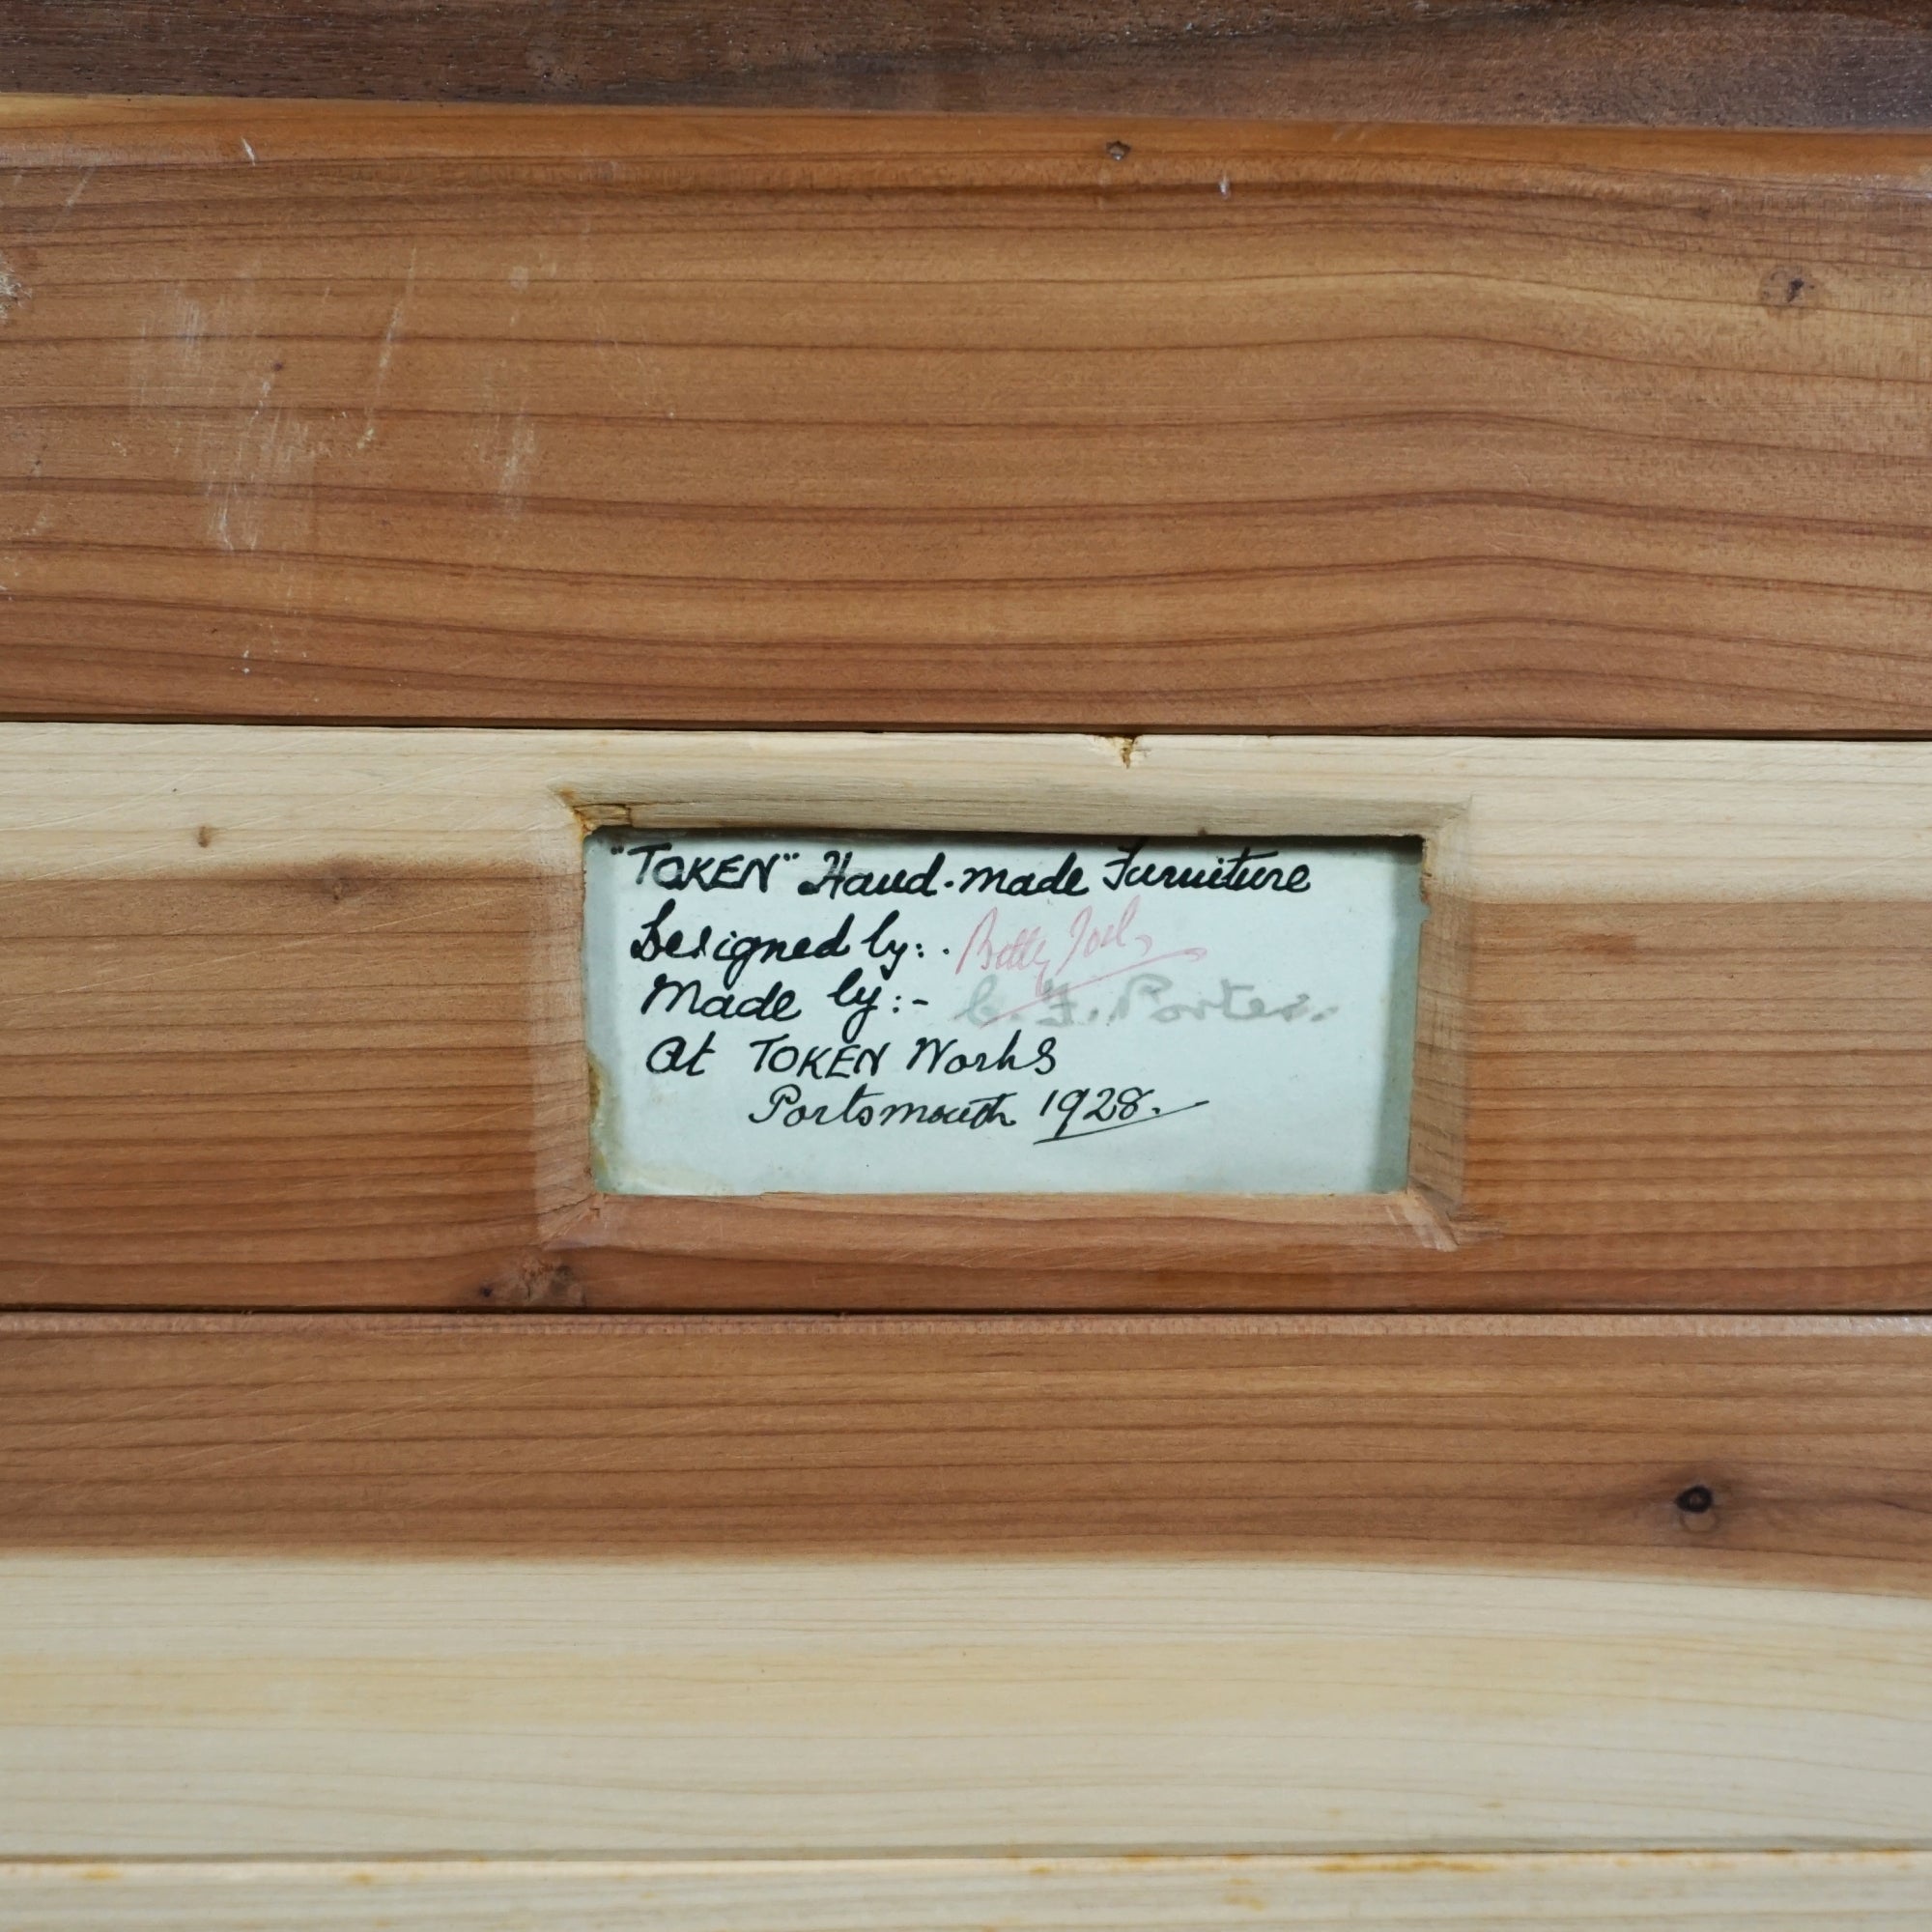 "TOKEN" Hand-made Furniture
Designed by:. Betty Joel,
Made by:- C. F. Porter.
At TOKEN Works
Portsmouth 1928.